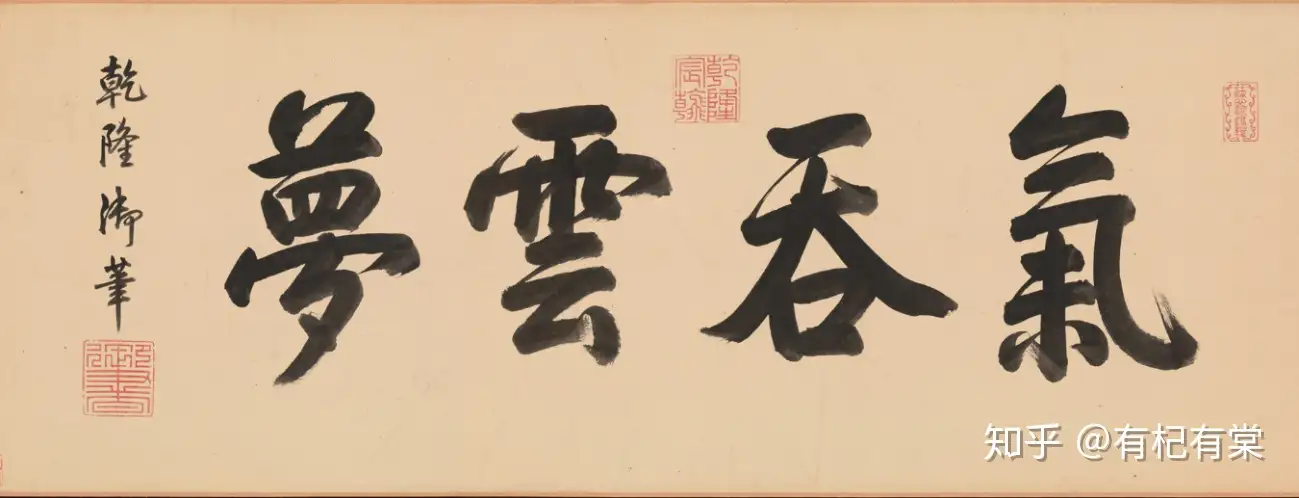 氣吞雲夢
乾隆宸翰
乾隆御筆
御書
知乎 @有杞有棠